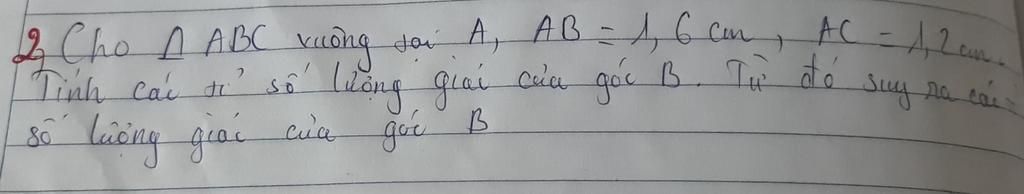 2, Cho Δ ABC vuông tại A, AB = 1,6 cm, AC = 1,2 cm.
Tính các tỉ số lượng giác của góc B. Từ đó suy ra các
số lượng giác của góc B